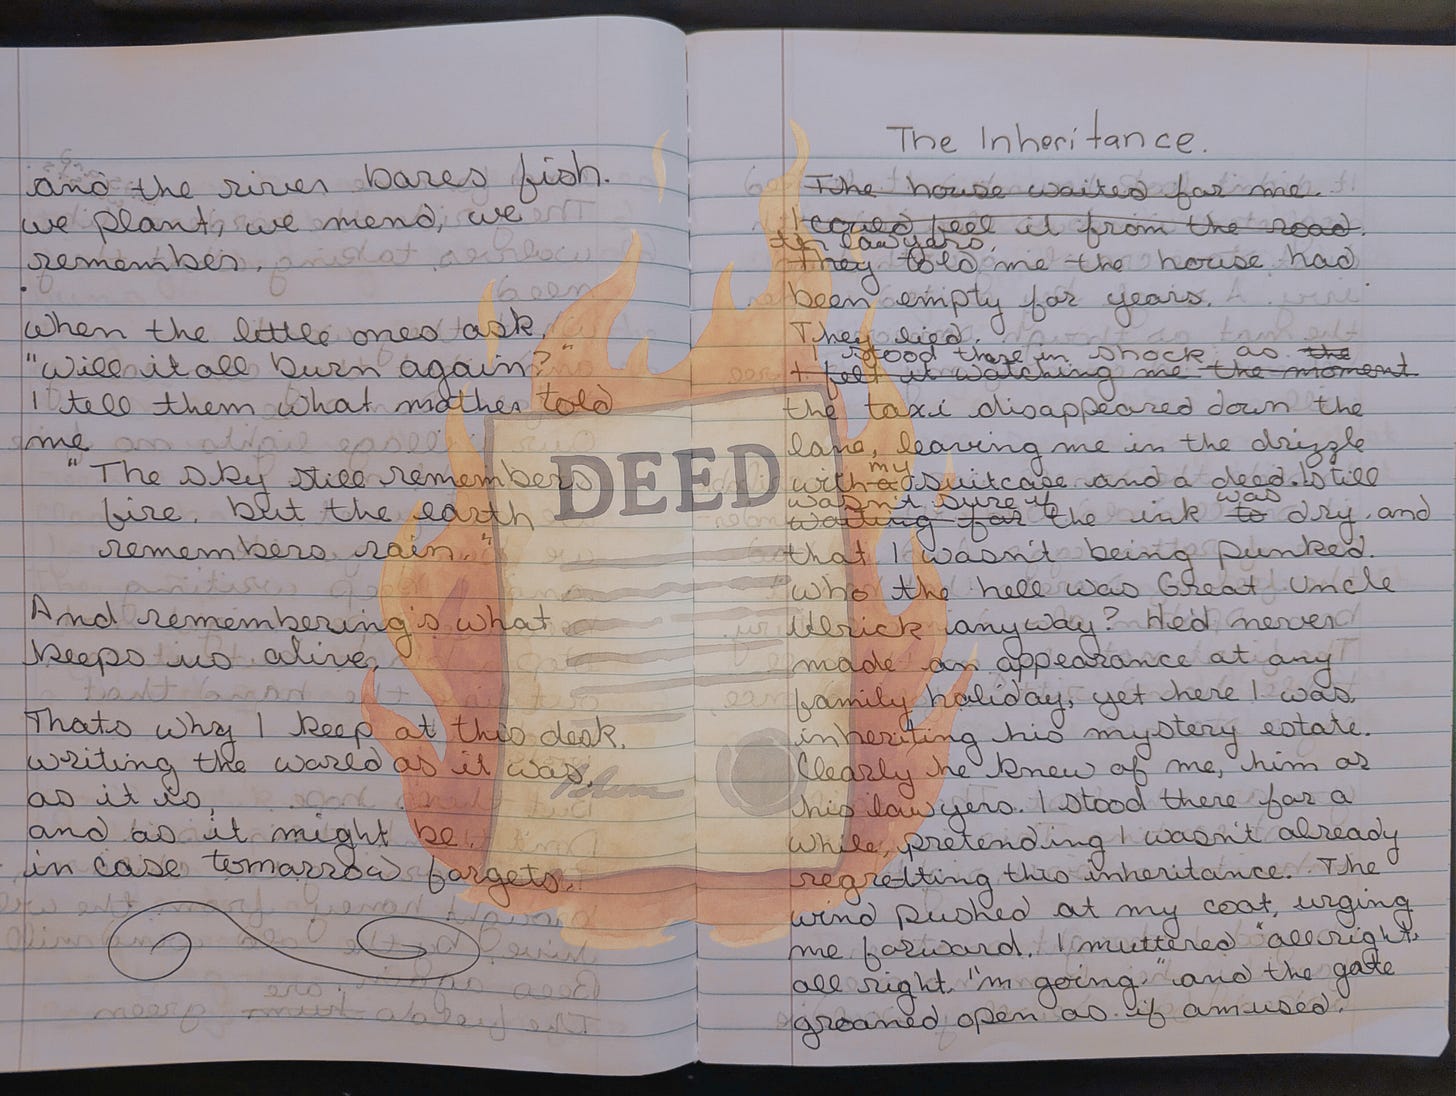 and the river bares fish.
we plant, we mend, we
remember.
when the little ones ask,
"will it all burn again?"
I tell them what mother told
me
"The sky still remembers
fire. but the earth
remembers rain."
And remembering is what
keeps us alive,
Thats why I keep at this desk.
writing the world as it was,
as it is,
and as it might be.
in case tomorrow forgets.
DEED
The Inheritance.
The house waited for me.
I could feel it from the road.
The lawyers,
They told me the house had
been empty for years.
They lied.
I stood there in shock as the
I felt it watching me the moment
the taxi disappeared down the
lane, leaving me in the drizzle
my
with a suitcase and a deed. I still
wasn't sure if was
waiting for the ink to dry. and
that I wasn't being punked.
Who the hell was Great Uncle
Ulrick anyway? He'd never
made an appearance at any
family holiday, yet here I was,
inheriting his mystery estate.
Clearly he knew of me, him or
his lawyers. I stood there for a
while, pretending I wasn't already
regretting this inheritance. The
wind pushed at my coat, urging
me forward. I muttered "all right,
all right. I'm going." and the gate
groaned open as if amused.